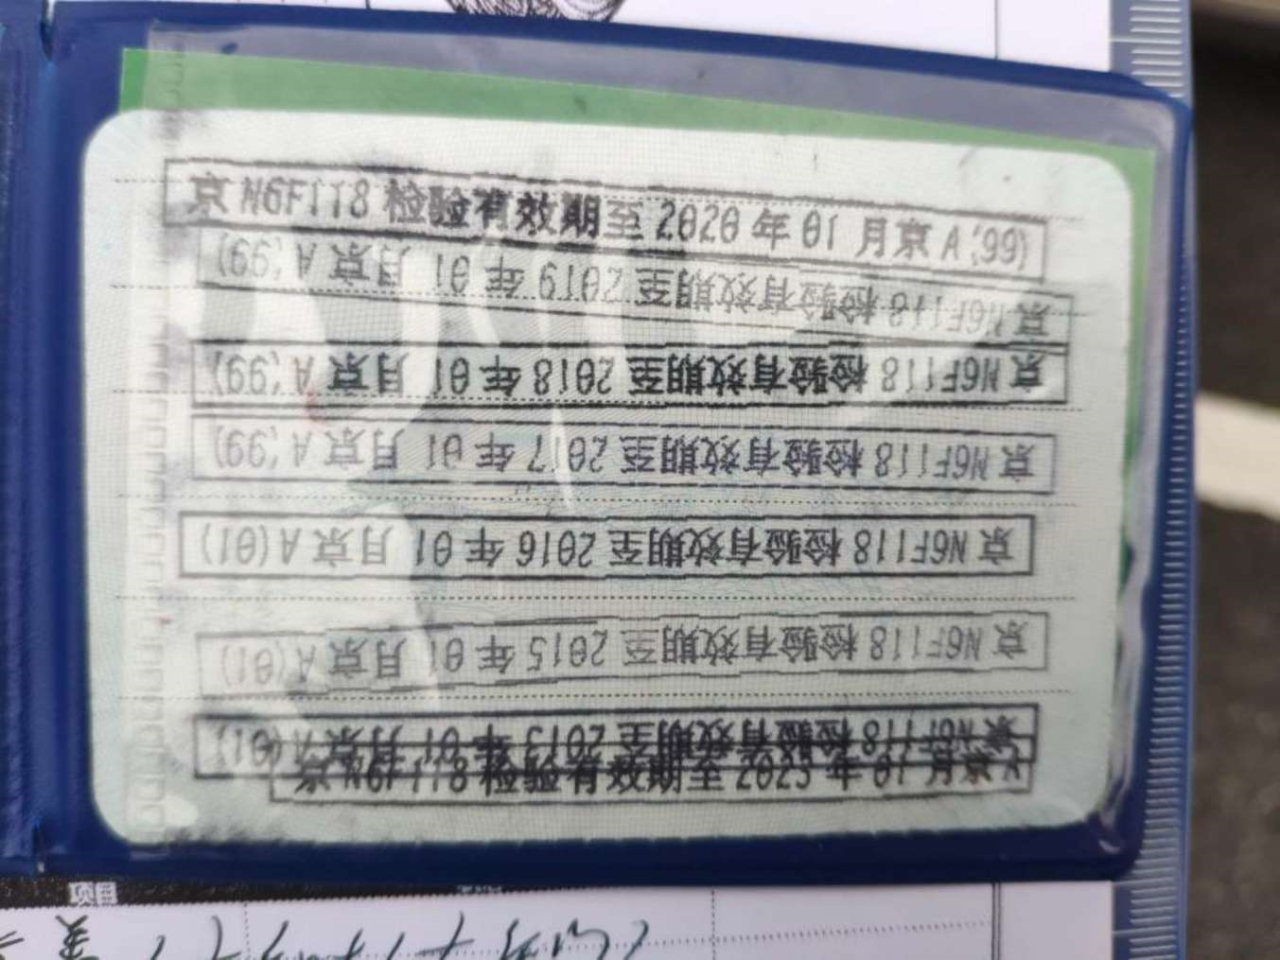 京N6F118 检验有效期至 2020 年 01 月京 A ,'99)
京N6F118 检验有效期至 2019 年 01 月京 A ,'99)
京N6F118 检验有效期至 2018 年 01 月京 A ,'99)
京N6F118 检验有效期至 2017 年 01 月京 A ,'99)
京N6F118 检验有效期至 2016 年 01 月京 A (01)
京N6F118 检验有效期至 2015 年 01 月京 A (01)
京N6F118 检验有效期至 2013 年 01 月京 A (01)
京N6F118 检验有效期至 2023 年 01 月京
项目